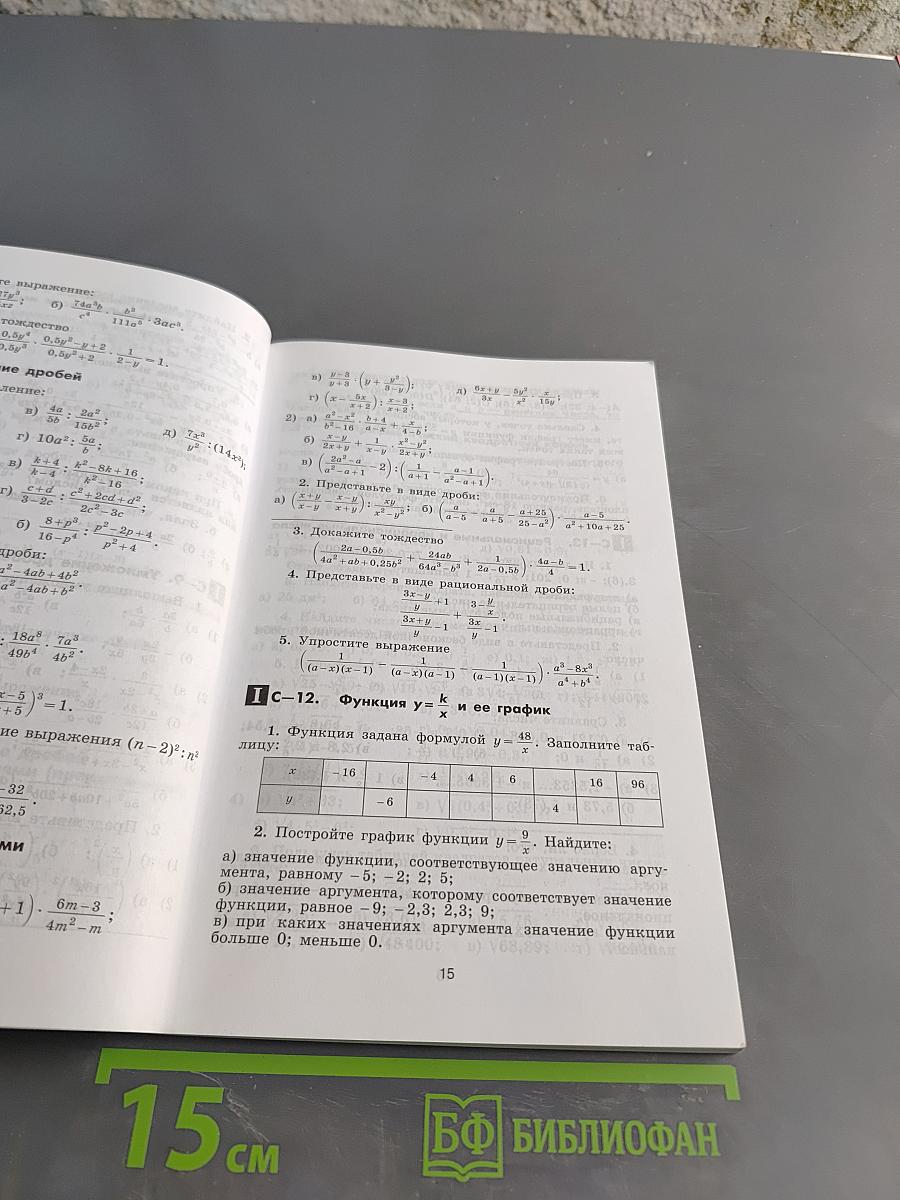 те выражение:
27y³/xz; б) 74a³b/c⁴ · b²/111a⁵ · 3ac³.
тождество
0,5y⁴/0,5y³ · 0,5y²−y+2/0,5y²+2 · 1/2−y = 1.
ние дробей
ление:
в) 4a/5b : 2a²/15b²;
г) 10a² : 5a/b; д) 7x³/y² : (14x²);
в) k+4/k−4 : k²−8k+16/k²−16;
г) c+d/3−2c : c²+2cd+d²/2c²−3c;
б) 8+p³/16−p⁴ : p²−2p+4/p²+4.
дроби:
a²−4ab+4b²/a²−4ab+b².
: 18a⁸/49b⁴ · 7a³/4b².
x−5/x+5)³ = 1.
ие выражения (n−2)² : n²
−32/62,5.
ми
+1) · 6m−3/4m²−m;
в) y−3/y+3 · (y + y²/3−y);
г) (x − 5x/x+2) : x−3/x+2; д) 6x+y/3x − 5y²/x² · x/15y;
2) а) a²−x²/b²−16 · b+4/a−x + x/4−b;
б) x−y/2x+y + 1/x−y · x²−y²/2x+y;
в) (2a²−a/a²−a+1 − 2) : (1/a+1 − a−1/a²−a+1).
2. Представьте в виде дроби:
а) (x+y/x−y − x−y/x+y) : xy/x²−y²; б) (a/a−5 − a/a+5 − a+25/25−a²) · a−5/a²+10a+25.
3. Докажите тождество
(2a−0,5b/4a²+ab+0,25b² + 24ab/64a³−b³ + 1/2a−0,5b) · 4a−b/4 = 1.
4. Представьте в виде рациональной дроби:
(3x−y/y + 1)/(3x+y/y − 1) + (3 − y/x)/(3x/y − 1).
5. Упростите выражение
(1/(a−x)(x−1) − 1/(a−x)(a−1) − 1/(a−1)(x−1)) · a³−8x³/a⁴+b⁴.
I С—12. Функция y = k/x и ее график
1. Функция задана формулой y = 48/x. Заполните таб-
лицу:
x −16 −4 4 6 16 96
y −6 4
2. Постройте график функции y = 9/x. Найдите:
а) значение функции, соответствующее значению аргу-
мента, равному −5; −2; 2; 5;
б) значение аргумента, которому соответствует значение
функции, равное −9; −2,3; 2,3; 9;
в) при каких значениях аргумента значение функции
больше 0; меньше 0.
15
15 см
БФ БИБЛИОФАН